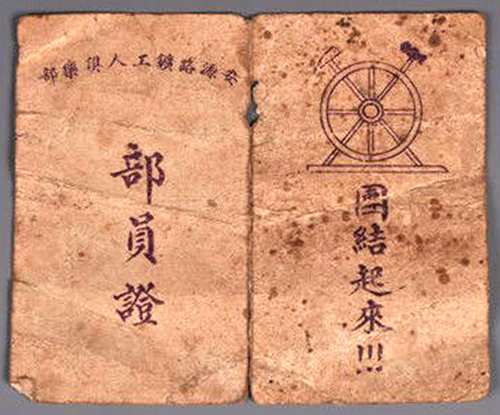 安源路鑛工人俱樂部
部員證
團結起來!!!